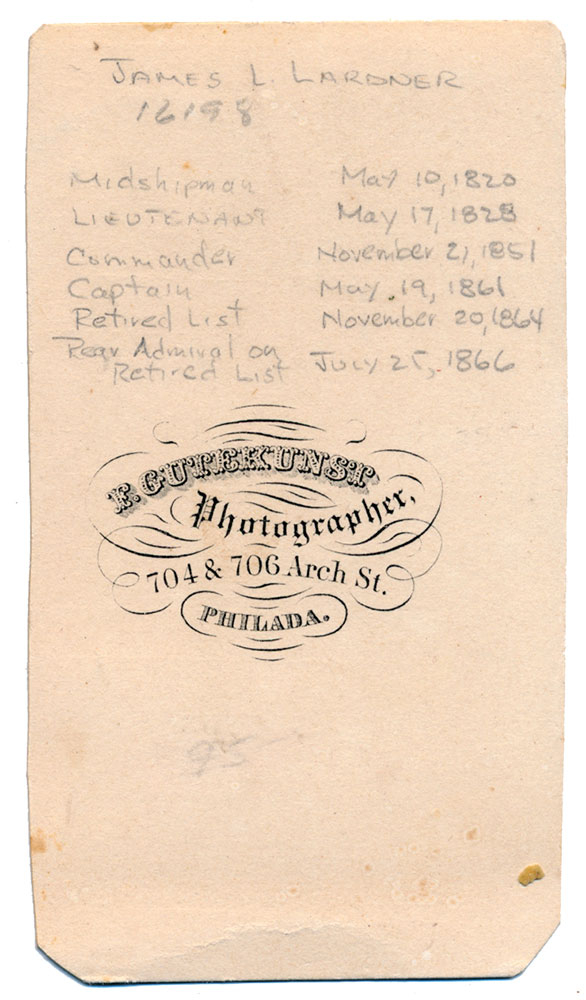 JAMES L. LARDNER
16198
Midshipman May 10, 1820
LIEUTENANT May 17, 1828
Commander November 21, 1851
Captain May 19, 1861
Retired List November 20, 1864
Rear Admiral on
Retired List July 25, 1866
F. GUTEKUNST
Photographer,
704 & 706 Arch St.
PHILADA.
95